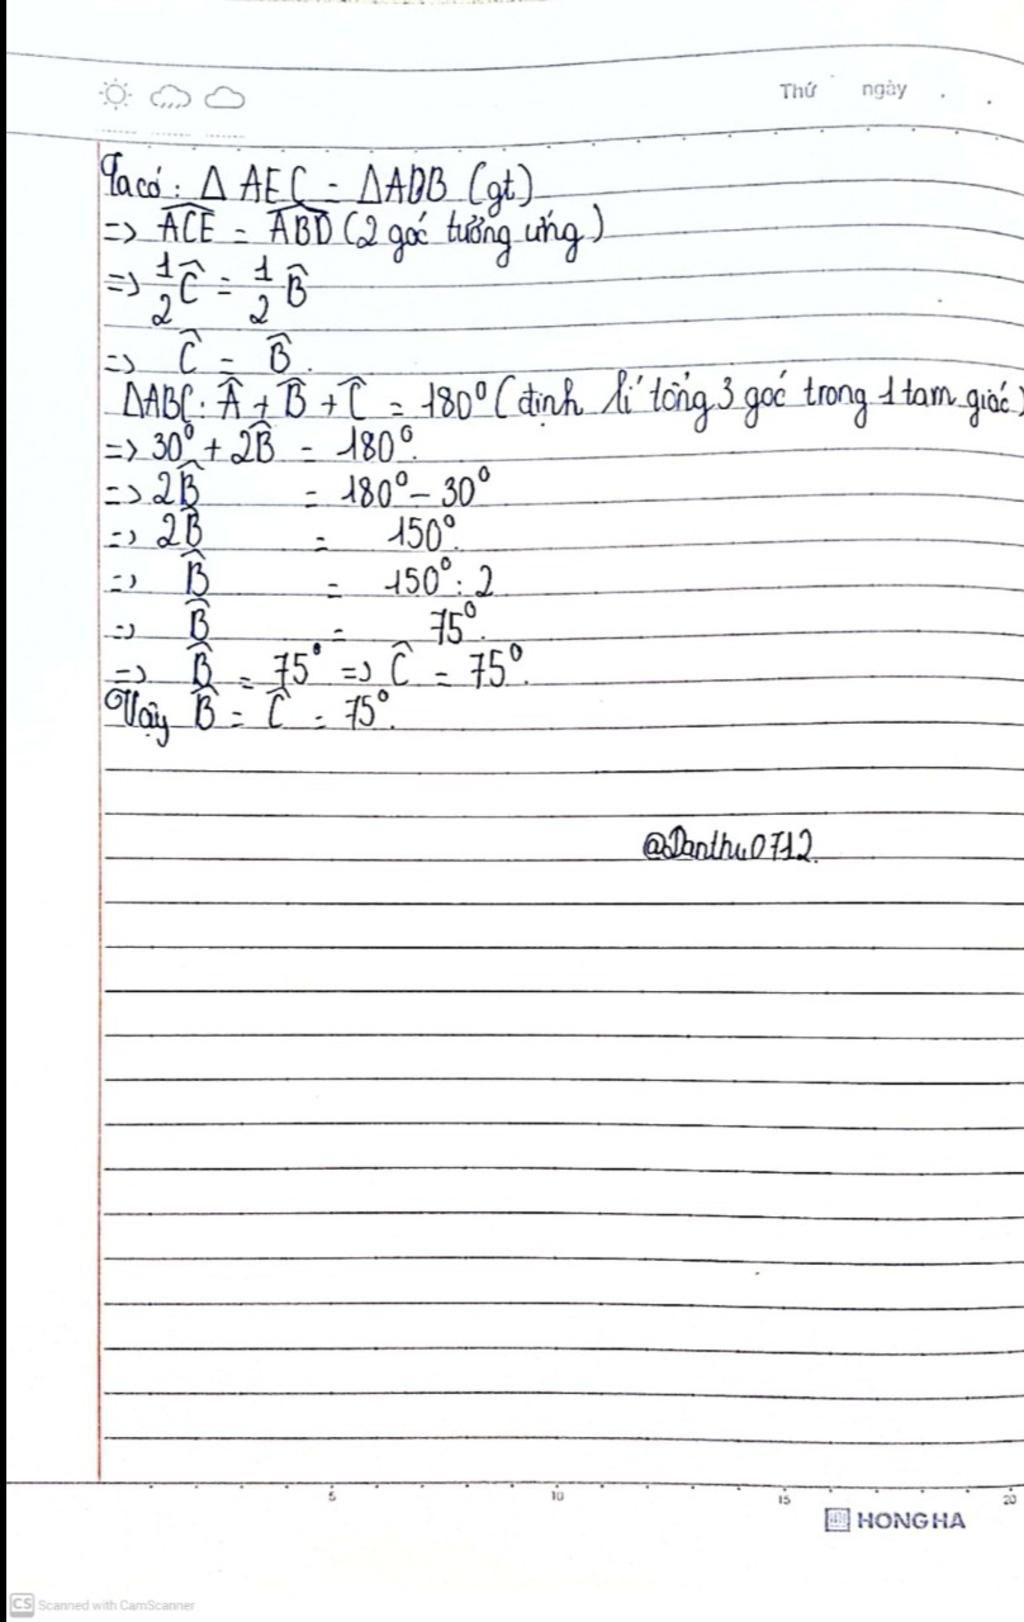 Thứ ngày
Ta có: Δ AEC = ΔADB (gt)
=> \widehat{ACE} = \widehat{ABD} (2 góc tương ứng)
=> \frac{1}{2}\widehat{C} = \frac{1}{2}\widehat{B}
=> \widehat{C} = \widehat{B}.
ΔABC: \widehat{A} + \widehat{B} + \widehat{C} = 180° (định lí tổng 3 góc trong 1 tam giác)
=> 30° + 2\widehat{B} = 180°.
=> 2\widehat{B} = 180° - 30°
=> 2\widehat{B} = 150°.
=> \widehat{B} = 150° : 2
=> \widehat{B} = 75°.
=> \widehat{B} = 75° => \widehat{C} = 75°.
Vậy \widehat{B} = \widehat{C} = 75°.
@Danthu0712.
5 10 15 20
HONG HA
CS Scanned with CamScanner